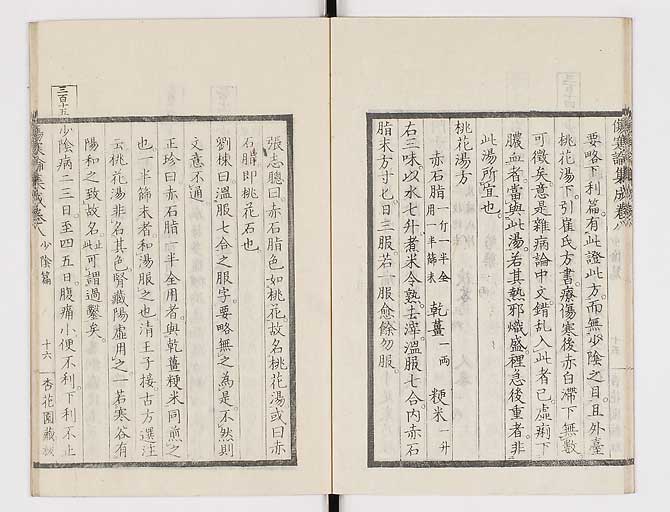 傷寒論集成卷八
要略下利篇有此證此方而無少陰之目且外臺
桃花湯下引崔氏方書療傷寒後赤白滯下無數
可徴矣意是雜病論中文錯乱入此者已虚痢下
膿血者當與此湯若其熱邪熾盛裡急後重者非
此湯所宜也
桃花湯方
赤石脂一斤一半全用一半篩末 乾薑一兩 粳米一升
右三味以水七升煮米令熟去滓溫服七合内赤石
脂末方寸匕日三服若一服愈餘勿服
張志聰曰赤石脂色如桃花故名桃花湯或曰赤
石脂即桃花石也
劉棟曰溫服七合之服字要略無之為是不然則
文意不通
正珍曰赤石脂一半全用者與乾薑粳米同煎之
也一半篩末者和湯服之也清王子接古方選注
云桃花湯非名其色腎藏陽虚用之一若寒谷有
陽和之致故名止此可謂過鑿矣
三百十五 少陰病二三日至四五日腹痛小便不利下利不止
傷寒論集成卷八 少陰篇 十六 杏花園藏板